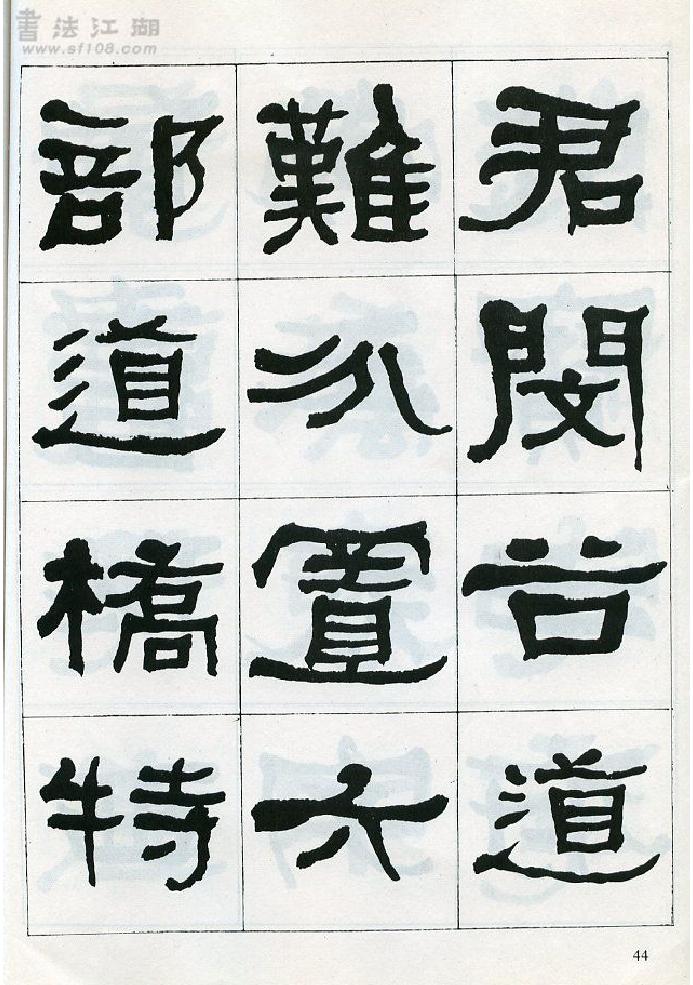 書法江湖
www.sf108.com
君閔谷道
難分置六
部道橋特
44